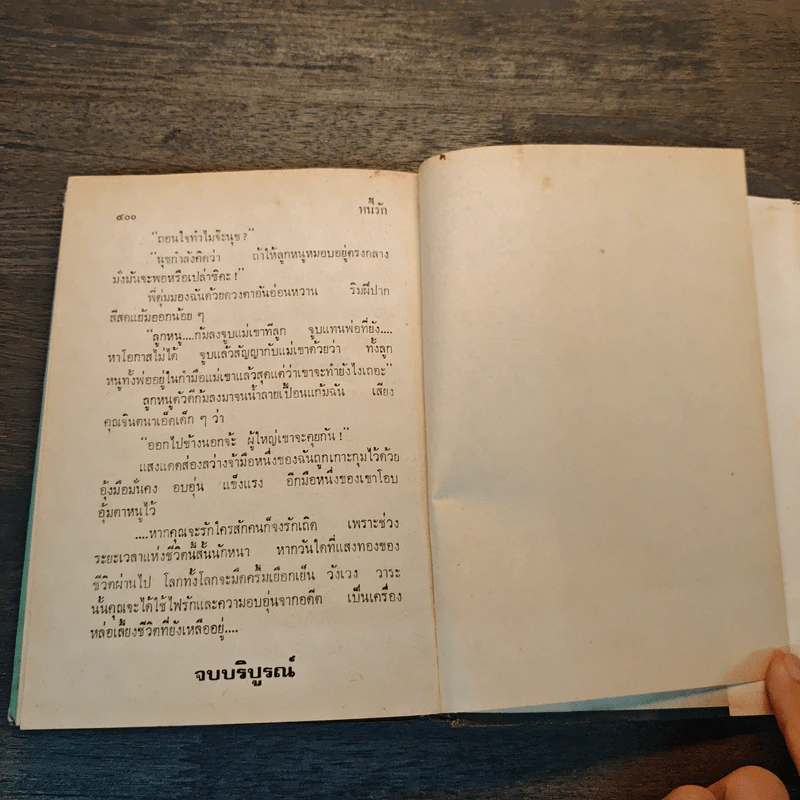 ๔๐๐ หนี้รัก
"ถอนใจทำไมจ๊ะนุช?"
"นุชกำลังคิดว่า ถ้าให้ลูกหนูหมอบอยู่ตรงกลาง
มั่งมันจะพอหรือเปล่าซิคะ!"
พี่ตุ่มมองฉันด้วยดวงตาอันอ่อนหวาน ริมฝีปาก
สีสดแย้มออกน้อย ๆ
"ลูกหนู....ก้มลงจูบแม่เขาทีลูก จูบแทนพ่อที่ยัง....
หาโอกาสไม่ได้ จูบแล้วสัญญากับแม่เขาด้วยว่า ทั้งลูก
หนูทั้งพ่ออยู่ในกำมือแม่เขาแล้วสุดแต่ว่าเขาจะทำยังไงเถอะ"
ลูกหนูตัวดีก้มลงมาจนน้ำลายเปื้อนแก้มฉัน เสียง
คุณจินตนาเอ็ดเด็ก ๆ ว่า
"ออกไปข้างนอกจ้ะ ผู้ใหญ่เขาจะคุยกัน!"
แสงแดดส่องสว่างจ้ามือหนึ่งของฉันถูกเกาะกุมไว้ด้วย
อุ้งมือมั่นคง อบอุ่น แข็งแรง อีกมือหนึ่งของเขาโอบ
อุ้มตาหนูไว้
....หากคุณจะรักใครสักคนก็จงรักเถิด เพราะช่วง
ระยะเวลาแห่งชีวิตนี้สั้นนักหนา หากวันใดที่แสงทองของ
ชีวิตผ่านไป โลกทั้งโลกจะมืดครึ้มเยือกเย็น วังเวง วาระ
นั้นคุณจะได้ใช้ไฟรักและความอบอุ่นจากอดีต เป็นเครื่อง
หล่อเลี้ยงชีวิตที่ยังเหลืออยู่....
จบบริบูรณ์